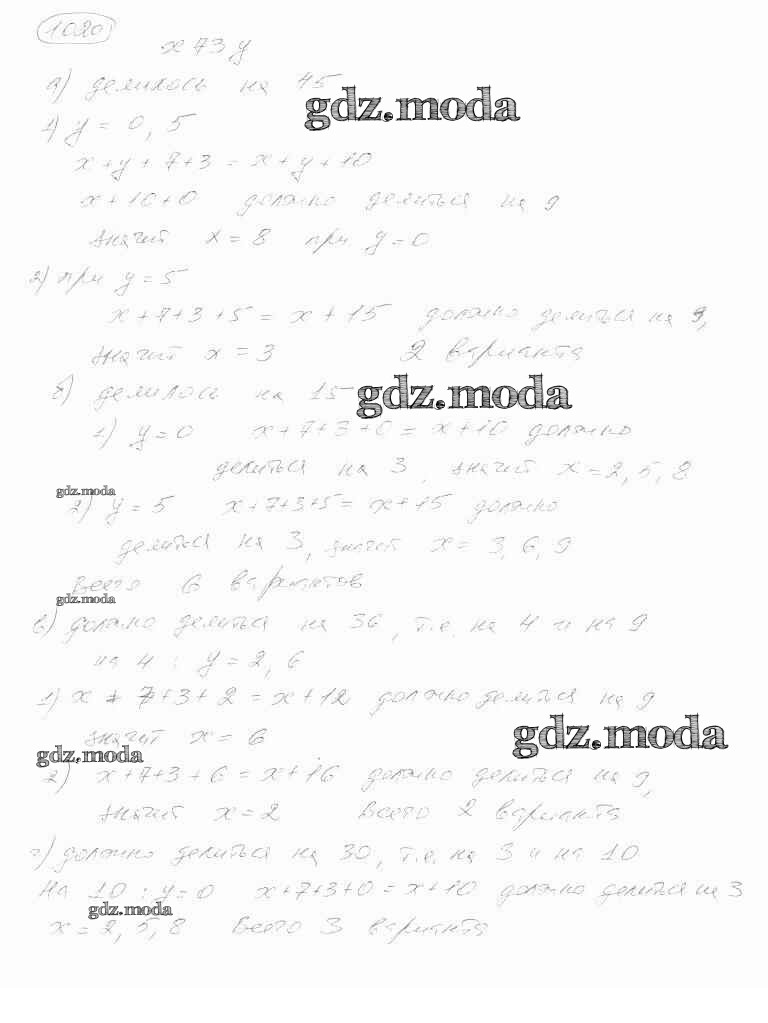 1020
x73y
а) делилось на 45
gdz.moda
1) y = 0, 5
x + y + 7 + 3 = x + y + 10
x + 10 + 0 должно делиться на 9
значит x = 8 при y = 0
2) при y = 5
x + 7 + 3 + 5 = x + 15 должно делиться на 9,
значит x = 3 2 варианта
б) делилось на 15
gdz.moda
1) y = 0 x + 7 + 3 + 0 = x + 10 должно
делиться на 3, значит x = 2, 5, 8
gdz.moda
2) y = 5 x + 7 + 3 + 5 = x + 15 должно
делиться на 3, значит x = 3, 6, 9
Всего 6 вариантов
gdz.moda
в) должно делиться на 36, т.е. на 4 и на 9
на 4 : y = 2, 6
1) x + 7 + 3 + 2 = x + 12 должно делиться на 9
значит x = 6
gdz.moda
gdz.moda
2) x + 7 + 3 + 6 = x + 16 должно делиться на 9,
значит x = 2 Всего 2 варианта
г) должно делиться на 30, т.е. на 3 и на 10
На 10 : y = 0 x + 7 + 3 + 0 = x + 10 должно делиться на 3
gdz.moda
x = 2, 5, 8 Всего 3 варианта